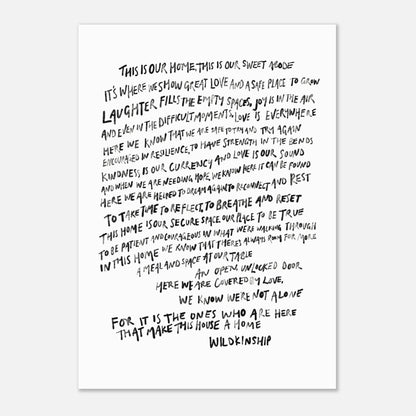 THIS IS OUR HOME, THIS IS OUR SWEET ABODE
IT'S WHERE WE SHOW GREAT LOVE AND A SAFE PLACE TO GROW
LAUGHTER FILLS THE EMPTY SPACES, JOY IS IN THE AIR
AND EVEN IN THE DIFFICULT MOMENTS LOVE IS EVERYWHERE
HERE WE KNOW THAT WE ARE SAFE TO TRY AND TRY AGAIN
ENCOURAGED IN RESILIENCE, TO HAVE STRENGTH IN THE BENDS
KINDNESS IS OUR CURRENCY AND LOVE IS OUR SOUND
AND WHEN WE ARE NEEDING HOPE, WE KNOW HERE IT CAN BE FOUND
HERE WE ARE HELPED TO DREAM AGAIN TO RECONNECT AND REST
TO TAKE TIME TO REFLECT, TO BREATHE AND RESET
THIS HOME IS OUR SECURE SPACE OUR PLACE TO BE TRUE
TO BE PATIENT AND COURAGEOUS IN WHAT WE'RE WALKING THROUGH
IN THIS HOME WE KNOW THAT THERE'S ALWAYS ROOM FOR MORE
A MEAL AND SPACE AT OUR TABLE
AN OPEN UNLOCKED DOOR
HERE WE ARE COVERED IN LOVE,
WE KNOW WE'RE NOT ALONE
FOR IT IS THE ONES WHO ARE HERE
THAT MAKE THIS HOUSE A HOME
WILDKINSHIP